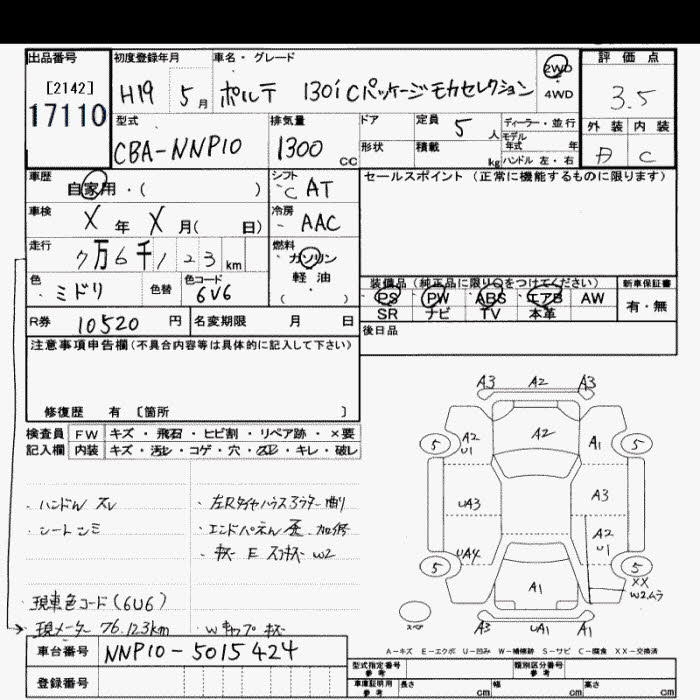 出品番号
[2142]
17110
初度登録年月
H19 5月
車名・グレード
ポルテ 130i Cパッケージモカセレクション
2WD
4WD
評価点
3.5
外装 内装
A C
型式
CBA-NNP10
排気量
1300 CC
ドア
形状
定員 5 人
積載 kg
ディーラー・並行
モデル
年式 年
ハンドル 左・右
車歴
自家用・( )
シフト
C AT
セールスポイント (正常に機能するものに限ります)
車検
X 年 X 月( 日)
冷房
AAC
走行
7万6千123 km
燃料
ガソリン
軽油
( )
色
ミドリ
色替
色コード
6V6
装備品 (純正品に限り○をつけてください)
PS PW ABS エアB AW
SR ナビ TV 本革
新車保証書
有・無
R券 10520 円
名変期限 月 日
後日品
注意事項申告欄(不具合内容等は具体的に記入して下さい)
修復歴 有 〔箇所 〕
検査員
記入欄
FW キズ・飛石・ヒビ割・リペア跡・×要
内装 キズ・汚レ・コゲ・穴・スレ・キレ・破レ
ハンドル スレ
シートシミ
左Rタイヤハウスアウター曲り
エンドパネル 歪 加修
キズ E スリキズ W2
現車色コード(6V6)
現メーター 76.123km
Wキャップ キズ
A3 A2 A3
5 A2 U1 A2 A1 5
UA3 A3
A2 U1
UA4
5 A1 5
XX
W2ムラ
スペア
A3 UA1 A3
A-キズ E-エクボ U-凹み W-補修跡 S-サビ C-腐食 XX-交換済
車台番号 NNP10-5015424
登録番号
型式指定番号
参考
類別区分番号
参考
車庫証明用
参考
長さ cm 幅 cm 高さ cm